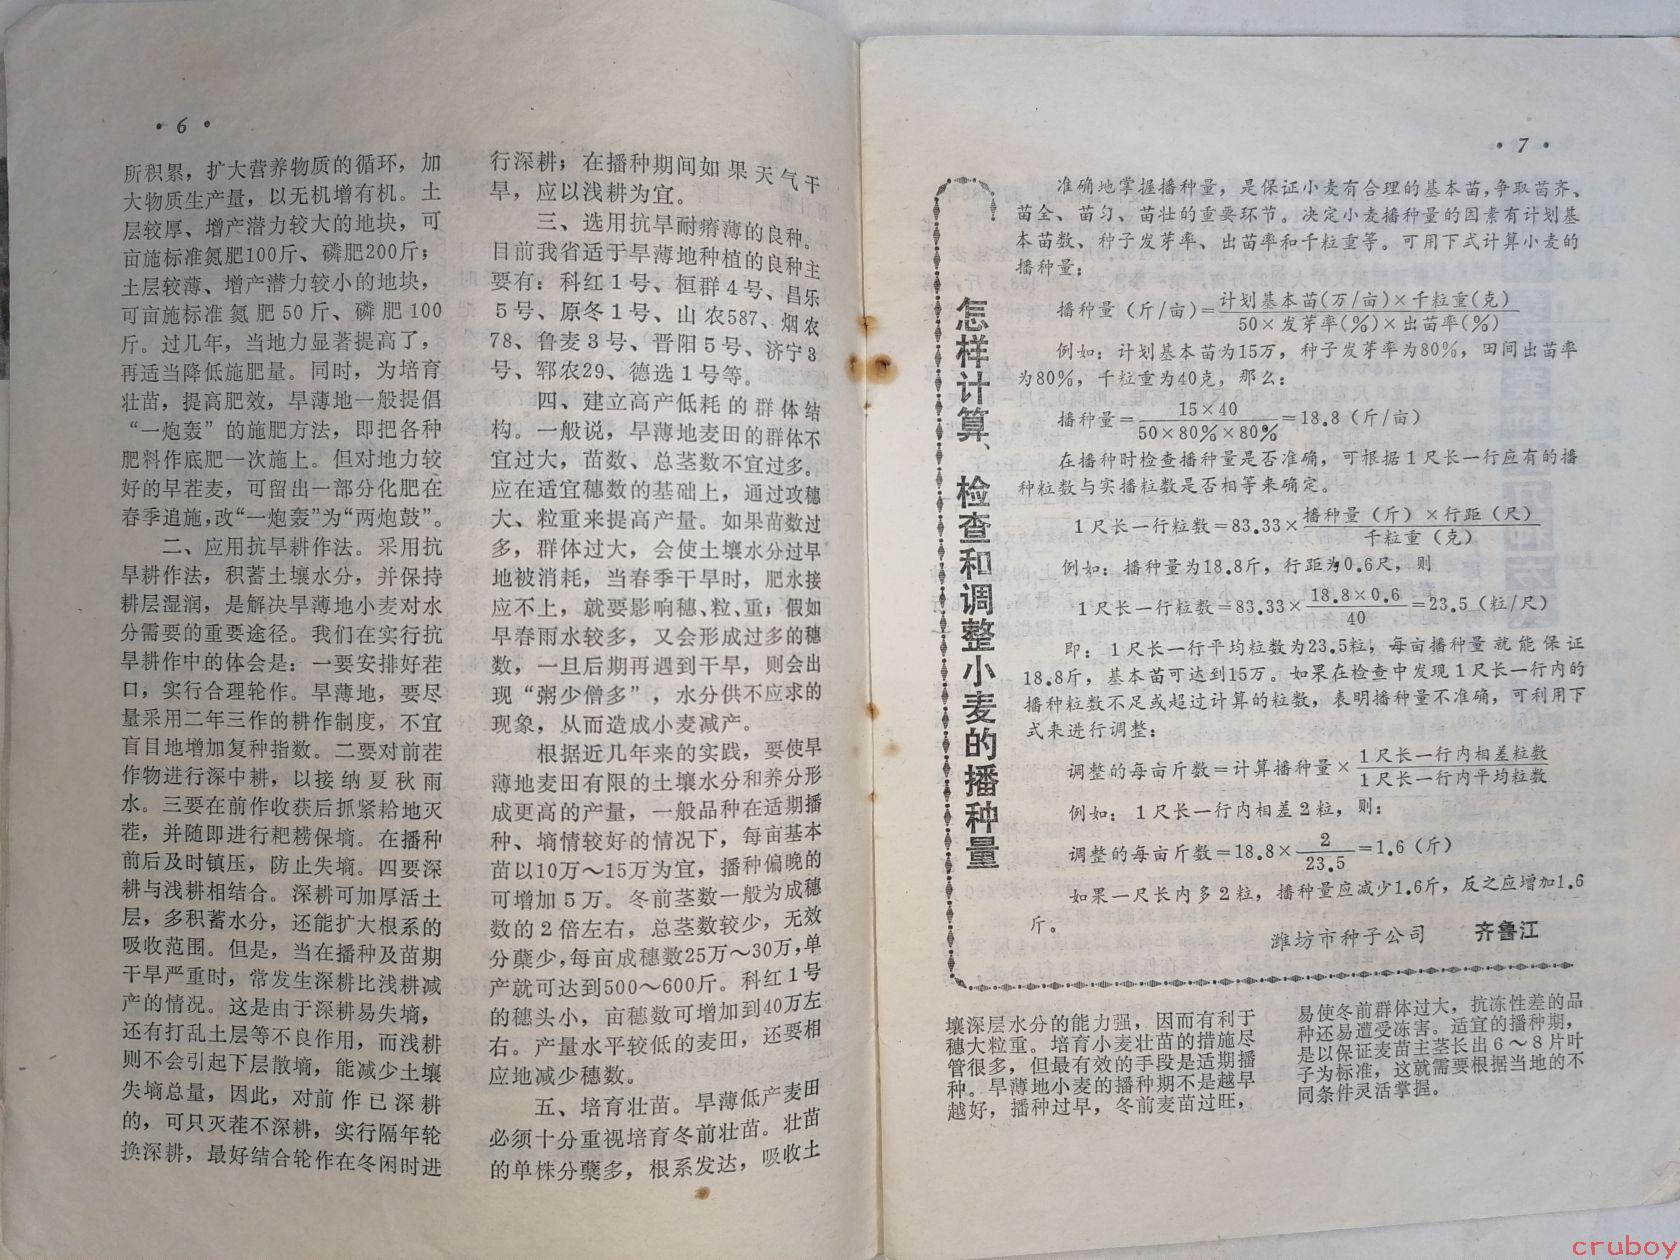 ·6·
所积累，扩大营养物质的循环，加
大物质生产量，以无机增有机。土
层较厚、增产潜力较大的地块，可
亩施标准氮肥100斤、磷肥200斤；
土层较薄、增产潜力较小的地块，
可亩施标准氮肥50斤、磷肥100
斤。过几年，当地力显著提高了，
再适当降低施肥量。同时，为培育
壮苗，提高肥效，旱薄地一般提倡
“一炮轰”的施肥方法，即把各种
肥料作底肥一次施上。但对地力较
好的早茬麦，可留出一部分化肥在
春季追施，改“一炮轰”为“两炮鼓”。
二、应用抗旱耕作法。采用抗
旱耕作法，积蓄土壤水分，并保持
耕层湿润，是解决旱薄地小麦对水
分需要的重要途径。我们在实行抗
旱耕作中的体会是：一要安排好茬
口，实行合理轮作。旱薄地，要尽
量采用二年三作的耕作制度，不宜
盲目地增加复种指数。二要对前茬
作物进行深中耕，以接纳夏秋雨
水。三要在前作收获后抓紧给地灭
茬，并随即进行耙耢保墒。在播种
前后及时镇压，防止失墒。四要深
耕与浅耕相结合。深耕可加厚活土
层，多积蓄水分，还能扩大根系的
吸收范围。但是，当在播种及苗期
干旱严重时，常发生深耕比浅耕减
产的情况。这是由于深耕易失墒，
还有打乱土层等不良作用，而浅耕
则不会引起下层散墒，能减少土壤
失墒总量，因此，对前作已深耕
的，可只灭茬不深耕，实行隔年轮
换深耕，最好结合轮作在冬闲时进
行深耕；在播种期间如果天气干
旱，应以浅耕为宜。
三、选用抗旱耐瘠薄的良种。
目前我省适于旱薄地种植的良种主
要有：科红1号、桓群4号、昌乐
5号、原冬1号、山农587、烟农
78、鲁麦3号、晋阳5号、济宁3
号、郓农29、德选1号等。
四、建立高产低耗的群体结
构。一般说，旱薄地麦田的群体不
宜过大，苗数、总茎数不宜过多。
应在适宜穗数的基础上，通过攻穗
大、粒重来提高产量。如果苗数过
多，群体过大，会使土壤水分过早
地被消耗，当春季干旱时，肥水接
应不上，就要影响穗、粒、重；假如
早春雨水较多，又会形成过多的穗
数，一旦后期再遇到干旱，则会出
现“粥少僧多”，水分供不应求的
现象，从而造成小麦减产。
根据近几年来的实践，要使旱
薄地麦田有限的土壤水分和养分形
成更高的产量，一般品种在适期播
种、墒情较好的情况下，每亩基本
苗以10万～15万为宜，播种偏晚的
可增加5万。冬前茎数一般为成穗
数的2倍左右，总茎数较少，无效
分蘖少，每亩成穗数25万～30万，单
产就可达到500～600斤。科红1号
的穗头小，亩穗数可增加到40万左
右。产量水平较低的麦田，还要相
应地减少穗数。
五、培育壮苗。旱薄低产麦田
必须十分重视培育冬前壮苗。壮苗
的单株分蘖多，根系发达，吸收土
·7·
怎样计算、检查和调整小麦的播种量
准确地掌握播种量，是保证小麦有合理的基本苗，争取苗齐、
苗全、苗匀、苗壮的重要环节。决定小麦播种量的因素有计划基
本苗数、种子发芽率、出苗率和千粒重等。可用下式计算小麦的
播种量：
播种量（斤/亩）=计划基本苗(万/亩)×千粒重(克)
50×发芽率(%)×出苗率(%)
例如：计划基本苗为15万，种子发芽率为80%，田间出苗率
为80%，千粒重为40克，那么：
播种量=15×40
50×80%×80%=18.8（斤/亩）
在播种时检查播种量是否准确，可根据1尺长一行应有的播
种粒数与实播粒数是否相等来确定。
1尺长一行粒数=83.33×播种量（斤）×行距（尺）
千粒重（克）
例如：播种量为18.8斤，行距为0.6尺，则
1尺长一行粒数=83.33×18.8×0.6
40=23.5（粒/尺）
即：1尺长一行平均粒数为23.5粒，每亩播种量就能保证
18.8斤，基本苗可达到15万。如果在检查中发现1尺长一行内的
播种粒数不足或超过计算的粒数，表明播种量不准确，可利用下
式来进行调整：
调整的每亩斤数=计算播种量×1尺长一行内相差粒数
1尺长一行内平均粒数
例如：1尺长一行内相差2粒，则：
调整的每亩斤数=18.8×2
23.5=1.6（斤）
如果一尺长内多2粒，播种量应减少1.6斤，反之应增加1.6
斤。
潍坊市种子公司 齐鲁江
壤深层水分的能力强，因而有利于
穗大粒重。培育小麦壮苗的措施尽
管很多，但最有效的手段是适期播
种。旱薄地小麦的播种期不是越早
越好，播种过早，冬前麦苗过旺，
易使冬前群体过大，抗冻性差的品
种还易遭受冻害。适宜的播种期，
是以保证麦苗主茎长出6～8片叶
子为标准，这就需要根据当地的不
同条件灵活掌握。
cruboy